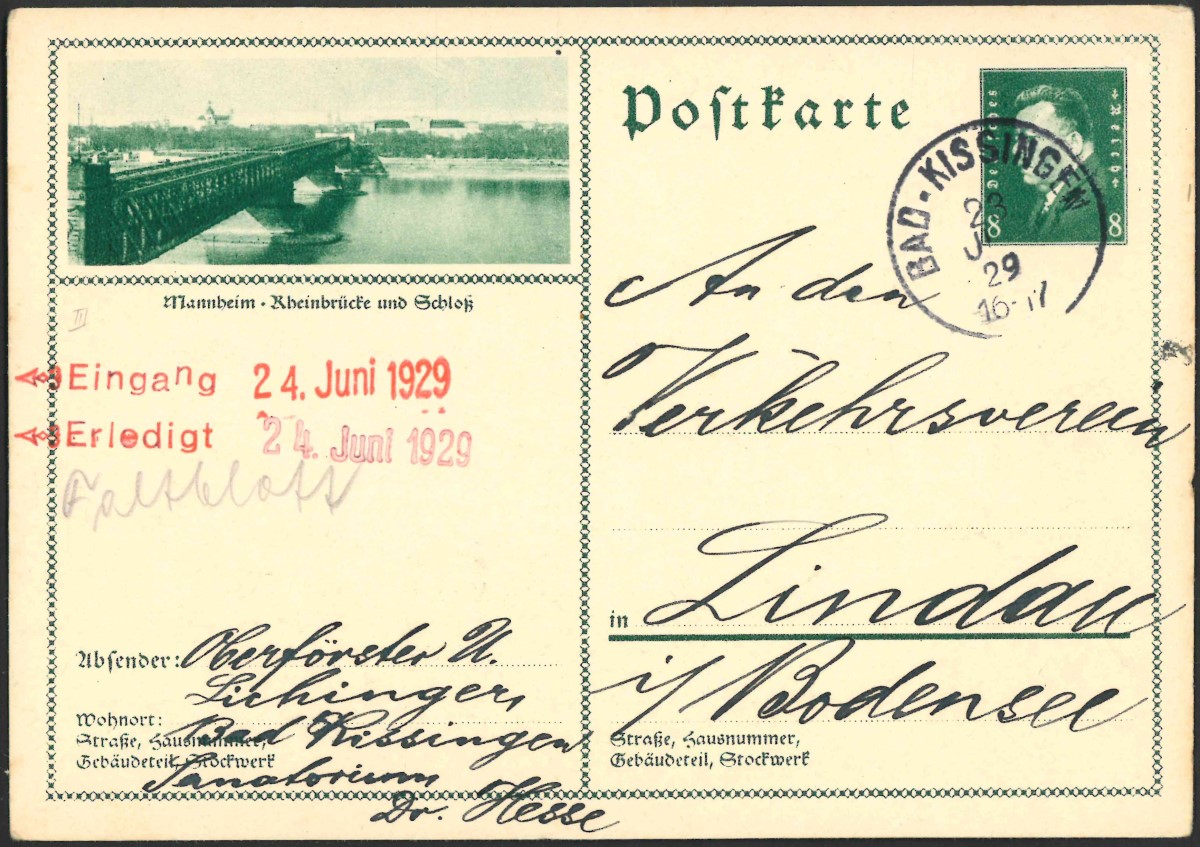 Mannheim · Rheinbrücke und Schloß
III
Eingang 24. Juni 1929
Erledigt 24. Juni 1929
Faltblatt
Absender: Oberförster U.
Lichinger,
Wohnort: Bad Kissingen
Straße, Hausnummer,
Gebäudeteil, Stockwerk
Sanatorium
Dr. Hesse
Postkarte
Deutsches Reich
8 8
BAD-KISSINGEN
23
J
29
16-17
An den
Verkehrsverein
in Lindau
i/Bodensee
Straße, Hausnummer,
Gebäudeteil, Stockwerk